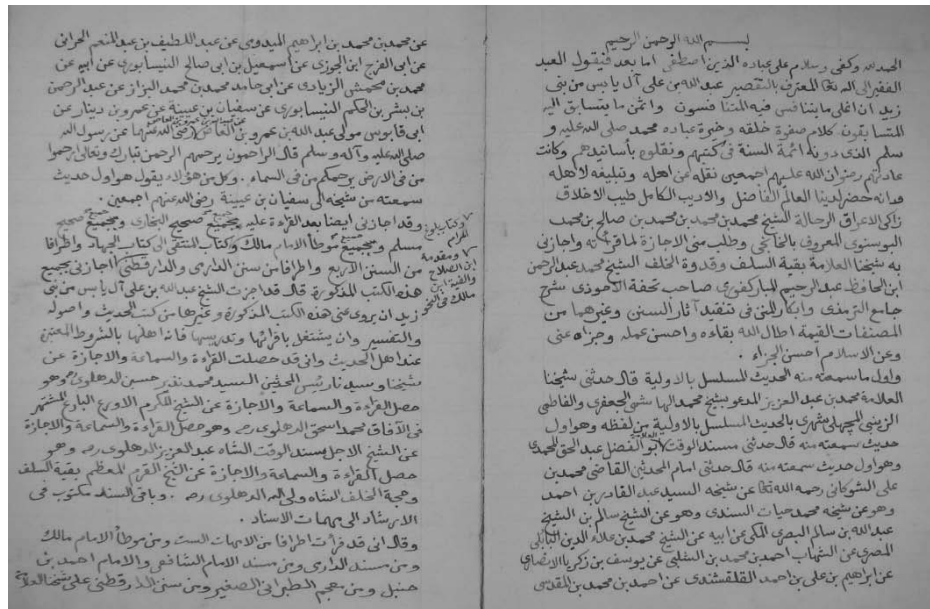 بسم الله الرحمن الرحيم
الحمد لله وكفى وسلام على عباده الذين اصطفى اما بعد فيقول العبد
الفقير الى الله تعالى المعترف بالتقصير عبد الله بن على آل يابس من بنى
زيد ان اغلى ما يتنافس فيه المتنافسون واثمن ما يتسابق اليه
المتسابقون كلام صفوة خلقه وخيرة عباده محمد صلى الله عليه و
سلم الذى دونه ائمة السنة فى كتبهم ونقلوه بأسانيدهم وكانت
عادتهم رضوان الله عليهم اجمعين نقله عن اهله وتبليغه لأهله
وانه حضر لدينا العالم الفاضل والاديب الكامل طيب الاخلاق
زاكى الاعراق الرحالة الشيخ محمد بن محمد بن محمد بن صالح بن محمد
البوسنوى المعروف بالخانجى وطلب منى الاجازة لما قرأته واجازنى
به شيخنا العلامة بقية السلف وقدوة الخلف الشيخ محمد عبد الرحمن
ابن الحافظ عبد الرحيم المباركفورى صاحب تحفة الاحوذى شرح
جامع الترمذى وابكار المنن فى تنقيد آثار السنن وغيرهما من
المصنفات القيمة اطال الله بقاءه واحسن عمله وجزاه عنى
وعن الاسلام احسن الجزاء .
واول ما سمعته منه الحديث المسلسل بالاولية قال حدثنى شيخنا
العلامة محمد بن عبد العزيز المدعو بشيخ محمد الهاشمى الجعفرى والفاطمى
الزينبى المچهلى شهرى بالحديث المسلسل بالاولية من لفظه وهو اول
حديث سمعته منه قال حدثنى مسند الوقت ابو الفضل عبد الحق المحمدى
وهو اول حديث سمعته منه قال حدثنى امام المحدثين القاضى محمد بن
على الشوكانى رحمه الله تعالى عن شيخه السيد عبد القادر بن احمد
وهو عن شيخه محمد حيات السندى وهو عن الشيخ سالم بن الشيخ
عبد الله بن سالم البصرى المكى عن ابيه عن الشيخ محمد بن علاء الدين البابلى
المصرى عن الشهاب احمد بن محمد بن الشلبى عن يوسف بن زكريا الانصارى
عن ابراهيم بن على بن احمد القلقشندى عن احمد بن محمد بن المقدسى
عن محمد بن محمد بن ابراهيم الميدومى عن عبد اللطيف بن عبد المنعم الحرانى
عن ابى الفرج ابن الجوزى عن اسمعيل بن ابى صالح النيسابورى عن ابيه عن
محمد بن محمش الزيادى عن ابى حامد محمد بن محمد البزاز عن عبد الرحمن
بن بشر بن الحكم النيسابورى عن سفيان بن عيينة عن عمرو بن دينار عن
ابى قابوس مولى عبد الله بن عمرو بن العاص رضى الله عنهما عن رسول الله
صلى الله عليه وآله وسلم قال الراحمون يرحمهم الرحمن تبارك وتعالى ارحموا
من فى الارض يرحمكم من فى السماء . وكل من هؤلاء يقول هو اول حديث
سمعته من شيخه الى سفيان بن عيينة رضى الله عنهم اجمعين .
وقد اجازنى ايضا بعد القراءة عليه بجميع صحيح البخارى وبجميع صحيح
مسلم وبجميع موطأ الامام مالك وكتاب المنتقى الى كتاب الجهاد واطرافا
من السنن الاربع واطرافا من سنن الدارمى والدارقطنى اجازنى بجميع
هذه الكتب المذكورة قال قد اجزت الشيخ عبد الله بن على آل يابس من بنى
زيد ان يروى عنى هذه الكتب المذكورة وغيرها من كتب الحديث واصوله
والتفسير وان يشتغل باقرائها وتدريسها فانه اهلها بالشروط المعتبرة
عند اهل الحديث وانى قد حصلت القراءة والسماعة والاجازة عن
شيخنا وسيدنا رئيس المحدثين السيد محمد نذير حسين الدهلوى رح وهو
حصل القراءة والسماعة والاجازة عن الشيخ المكرم الاورع البارع المشتهر
فى الآفاق محمد اسحق الدهلوى رح وهو حصل القراءة والسماعة والاجازة
عن الشيخ الاجل مسند الوقت الشاه عبد العزيز الدهلوى رح وهو
حصل القراءة والسماعة والاجازة عن الشيخ القرم المعظم بقية السلف
وحجة الخلف الشاه ولى الله الدهلوى رح . وباقى السند مكتوب فى
الارشاد الى مهمات الاسناد .
وقال انى قد قرأت اطرافا من الامهات الست ومن موطأ الامام مالك
ومن مسند الدارمى ومن مسند الامام الشافعى والامام احمد بن
حنبل ومن معجم الطبرانى الصغير ومن سنن الدارقطنى على شيخنا العلامة
وكتاب بلوغ
المرام
ومقدمة
ابن الصلاح
والفية ابن
مالك فى النحو